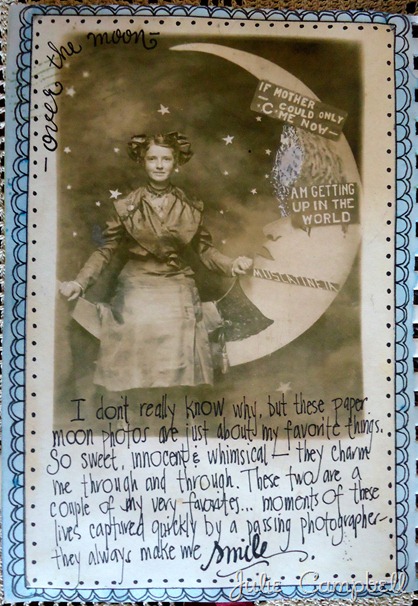 -over the moon-
IF MOTHER
COULD ONLY
"C" ME NOW-
AM GETTING
UP IN THE
WORLD
MUSCATINE, IA
I don't really know why, but these paper
moon photos are just about my favorite things.
So sweet, innocent & whimsical - they charm
me through and through. These two are a
couple of my very favorites... moments of these
lives captured quickly by a passing photographer-
they always make me smile.
Julie Campbell